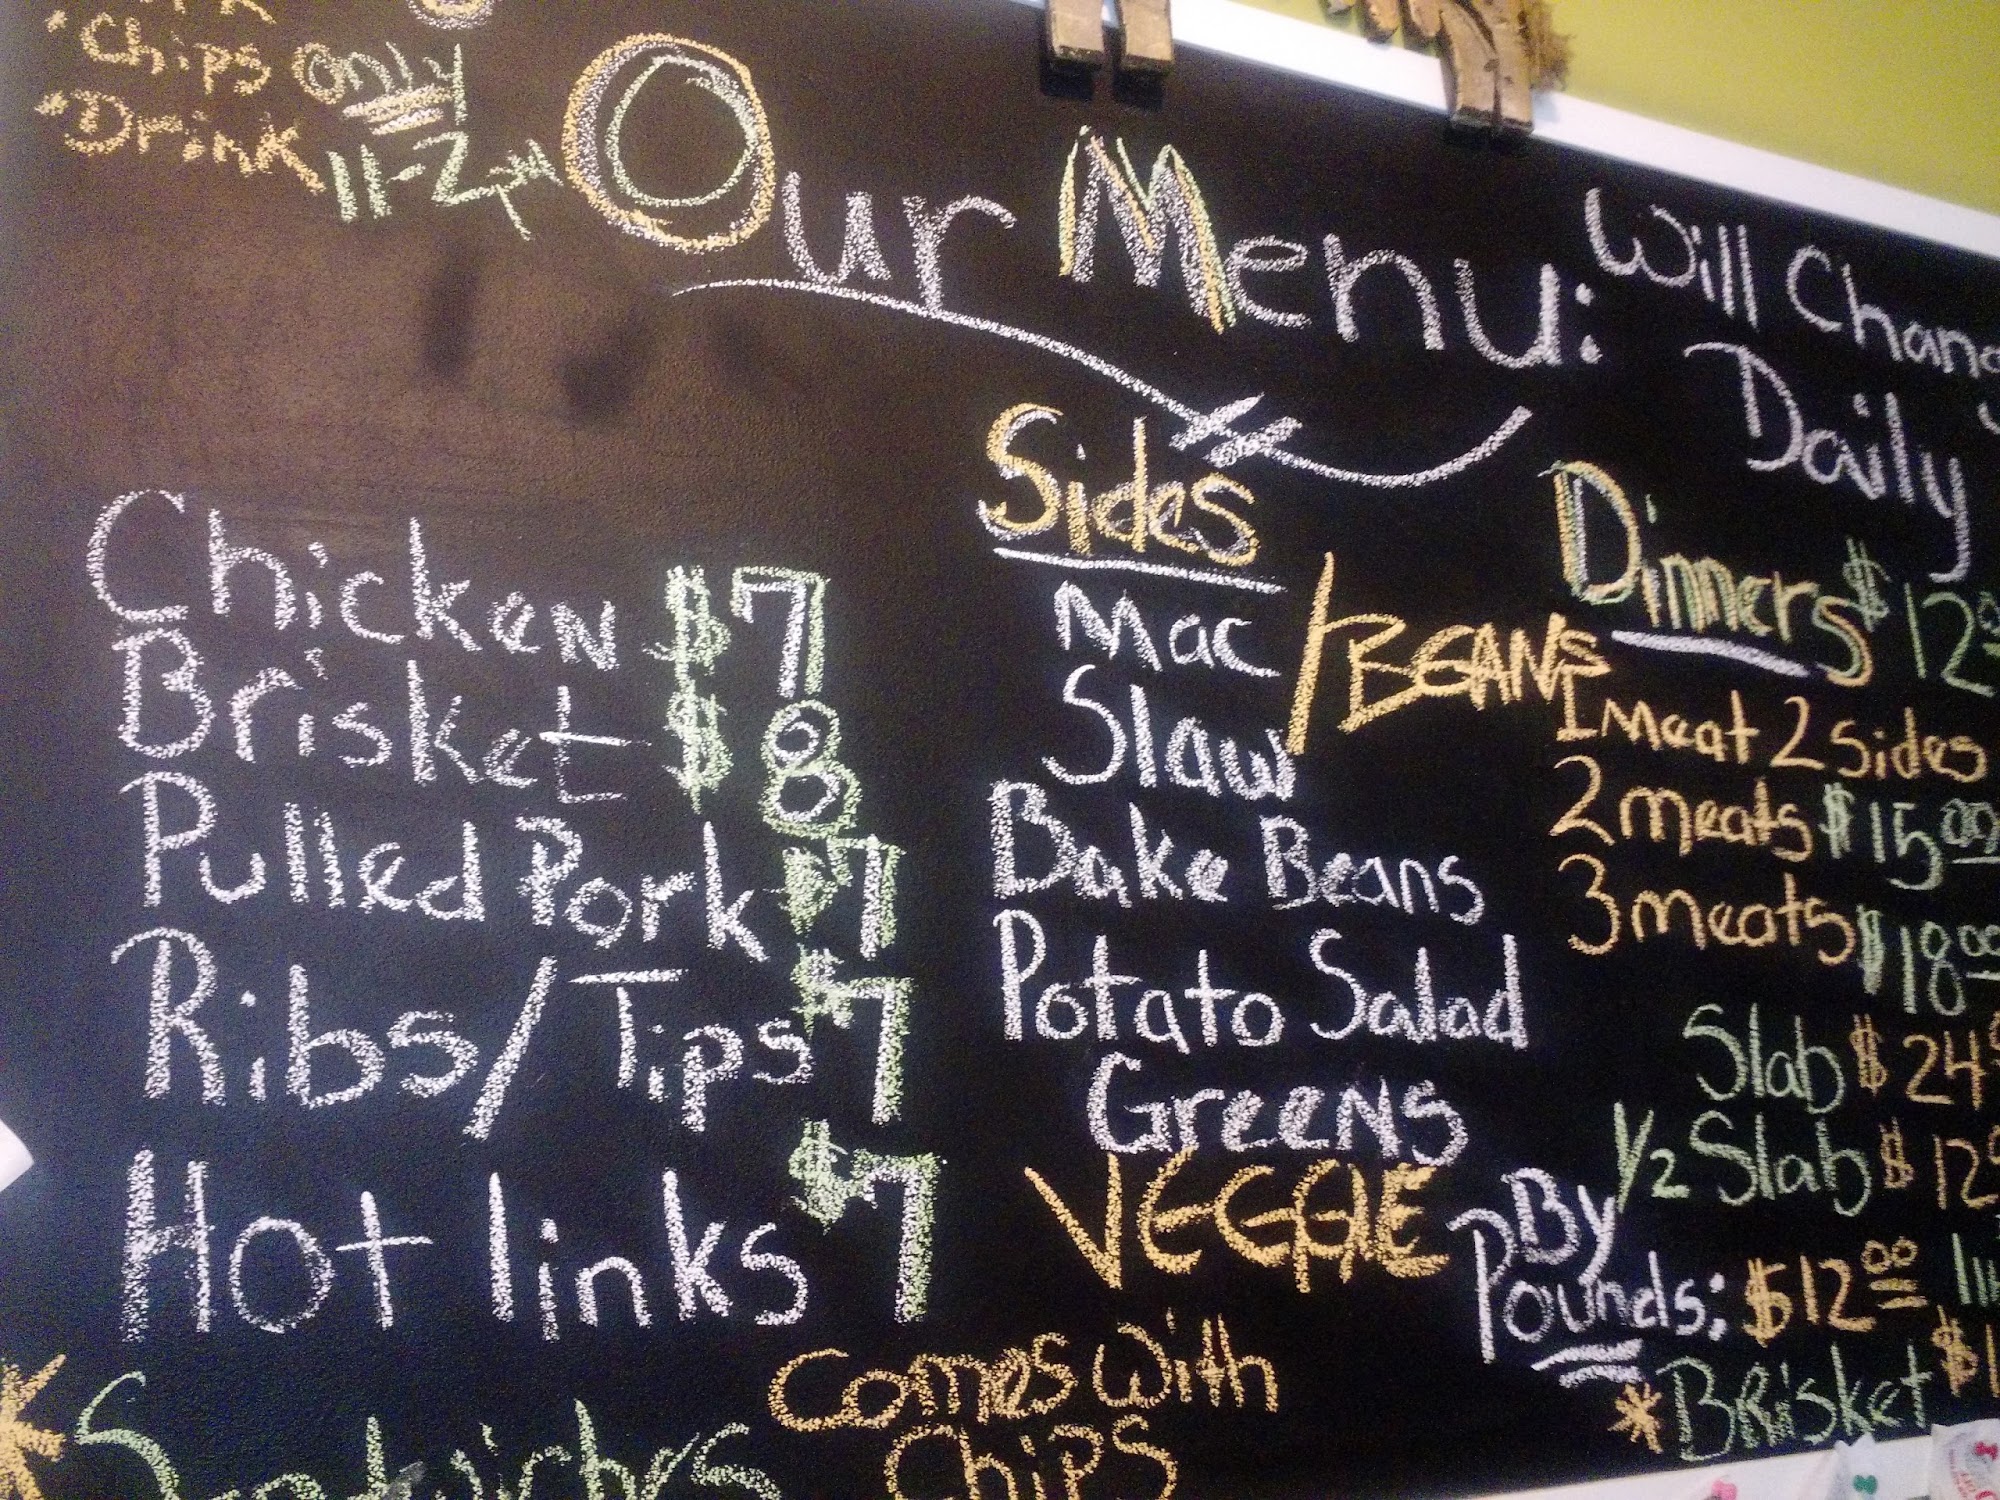 *Chips only
*Drink 11-2pm
Our Menu:
Will Chang
Daily
Chicken $7
Brisket $8
Pulled Pork $7
Ribs/Tips $7
Hot links $7
* Sandwiches
Comes With
Chips
Sides
Mac
Slaw /BEANS
Bake Beans
Potato Salad
Greens
VEGGIE
Dinners $12
1 Meat 2 sides
2 meats $15.00
3 meats $18.00
Slab $24
1/2 Slab $12
By
Pounds: $12.00
*Brisket $1